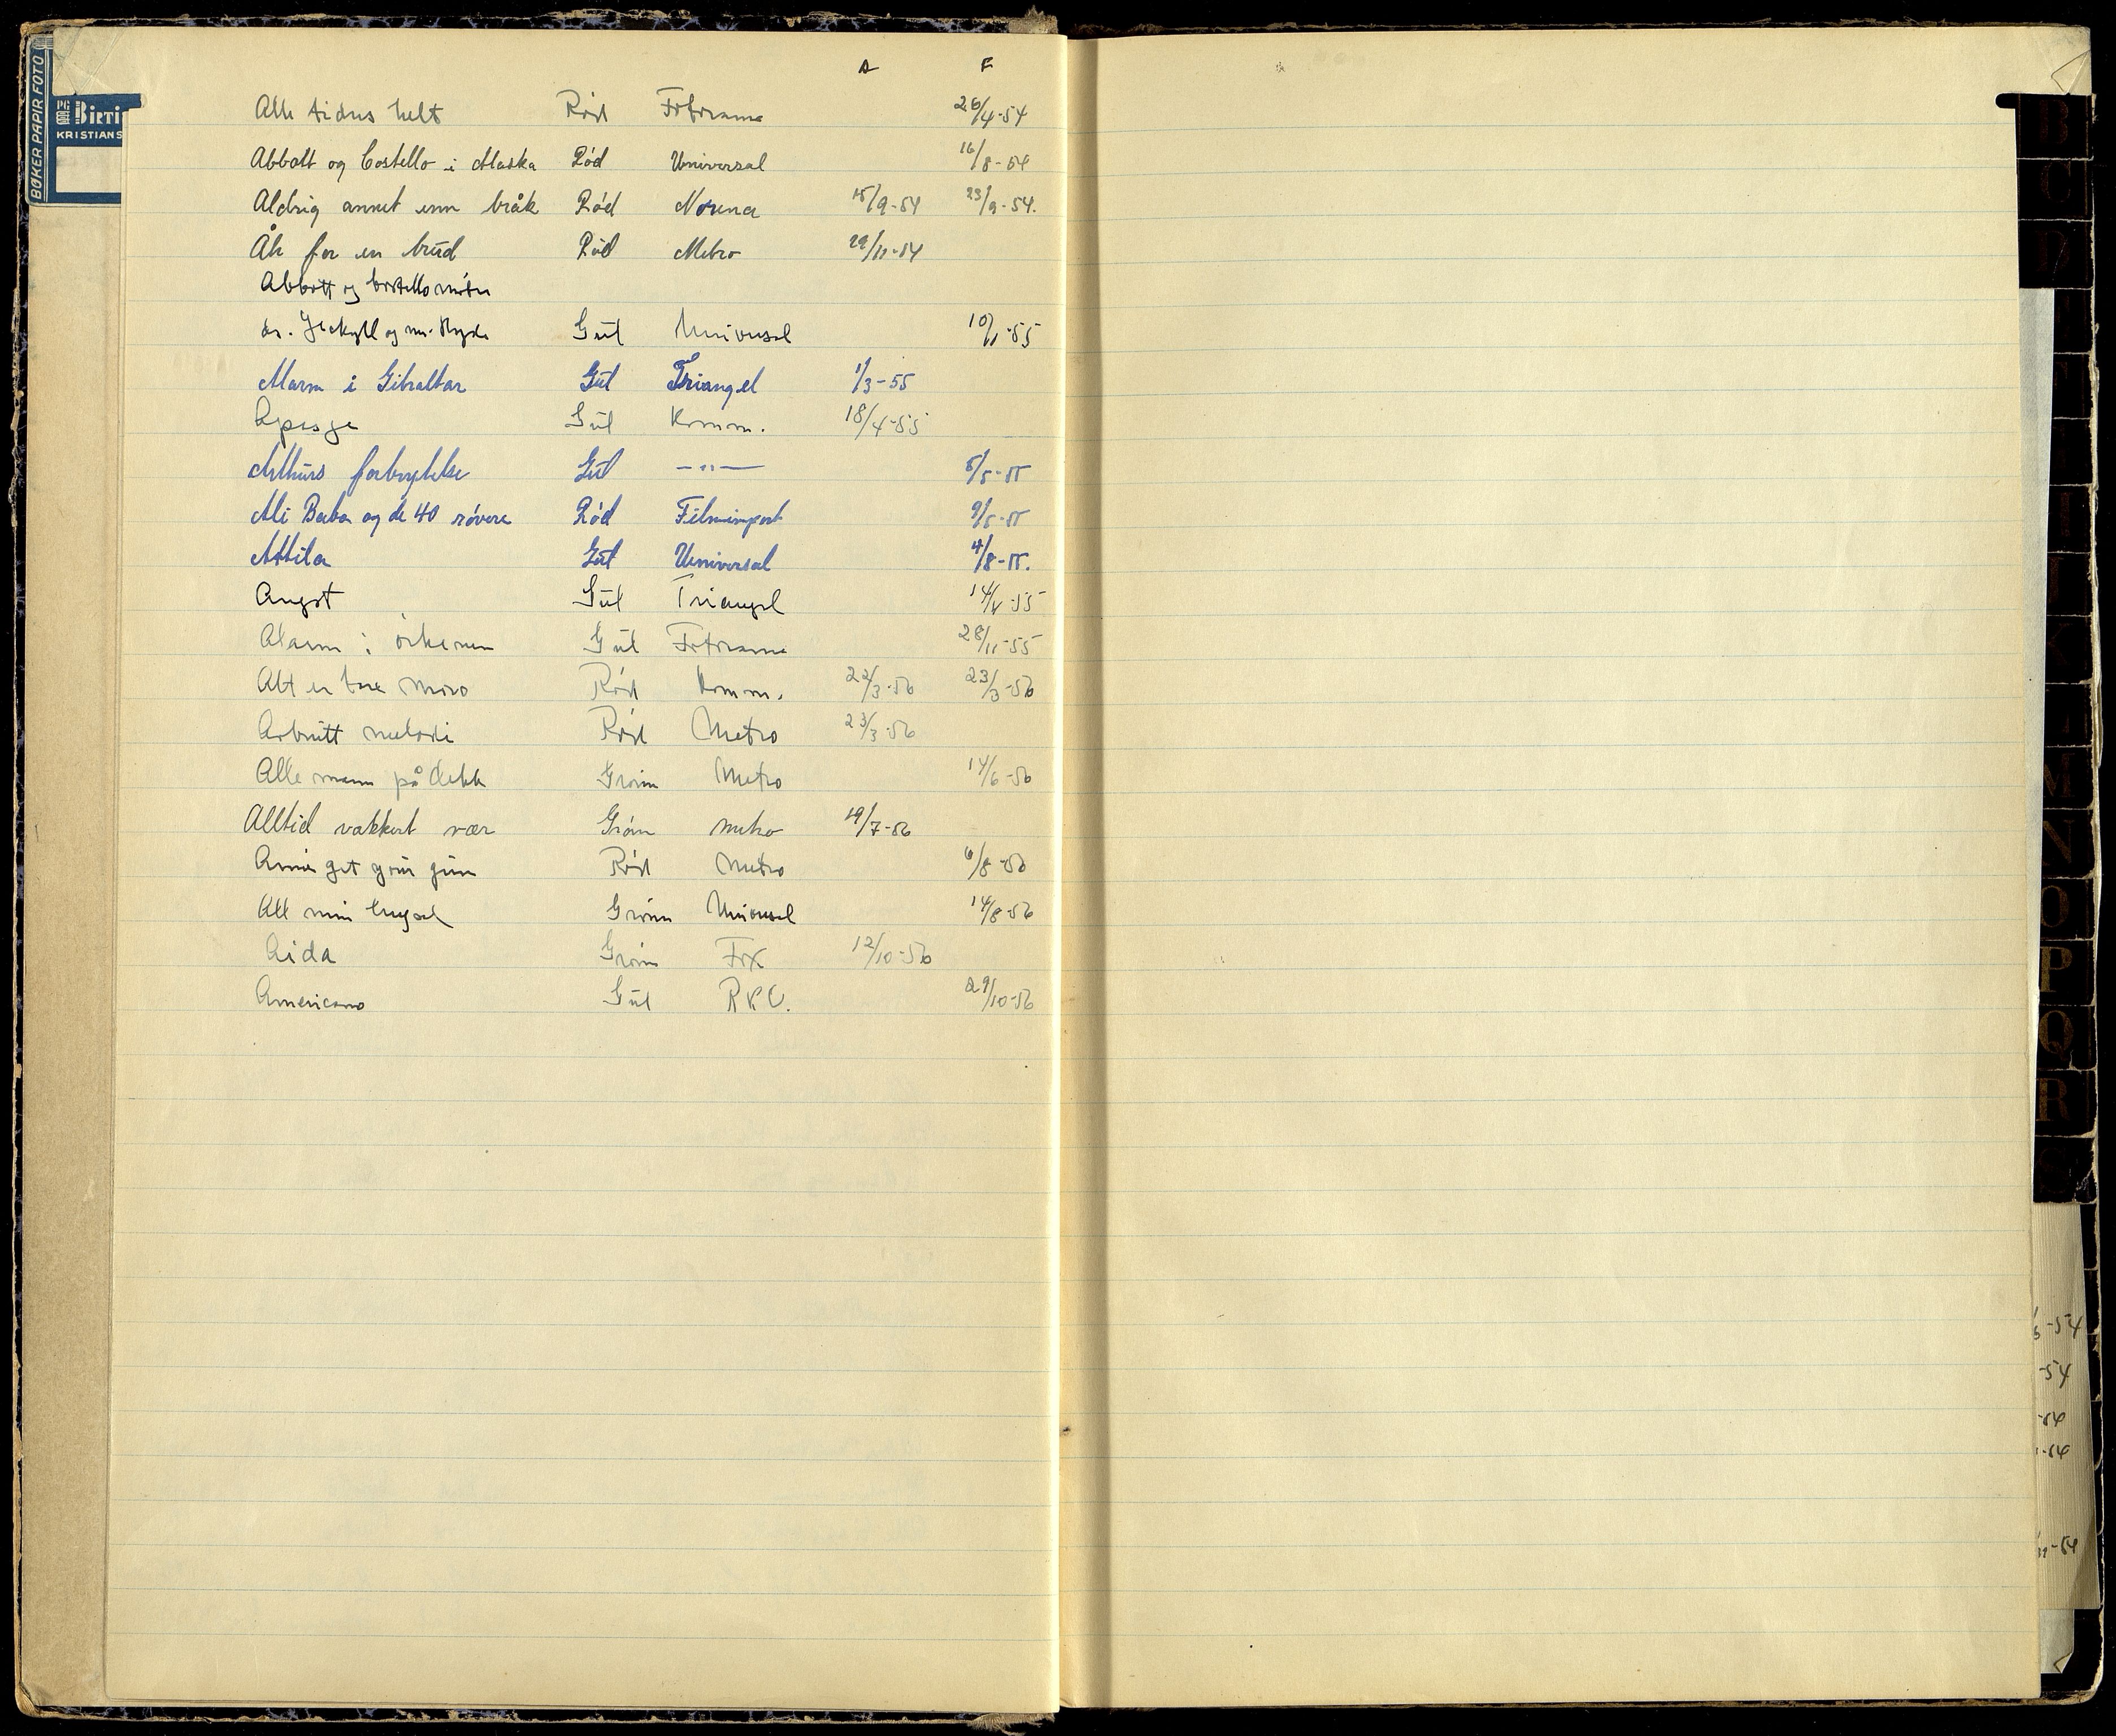 A F
Alle tiders helt Rød Fotorama 26/4-54
Abbott og Costello i Alaska Rød Universal 16/8-54
Aldrig annet enn bråk Rød Norena 15/9-54 23/9-54.
Åk for en brud Rød Metro 29/11-54
Abbott og Costello møter
dr. Jeckyll og mr. Hyde Gul Universal 10/1-55
Alarm i Gibraltar Gul Triangel 1/3-55
Apesje Gul Komm. 18/4-55
Arthurs forbrytelse Gul —"— 5/5-55
Ali Baba og de 40 røvere Rød Filmimport 9/5-55
Attila Gul Universal 4/8-55.
Angst Gul Triangel 14/-55
Alarm i ørkenen Gul Fotorama 28/11-55
Alt er bare moro Rød Komm. 22/3-56 23/3-56
Avbrutt melodi Rød Metro 23/3-56
Alle mann på dekk Grønn Metro 14/6-56
Alltid vakkert vær Grønn metro 19/7-56
Annie get your gun Rød Metro 6/8-56
All min lengsel Grønn Universal 14/8-56
Aida Grønn Fox 12/10-56
Americano Gul RKO. 29/10-56
BØKER PAPIR FOTO
BIRTI
KRISTIANS
B
C
D
K
M
N
O
P
Q
R
S
-54
-54
-54
-54
-54